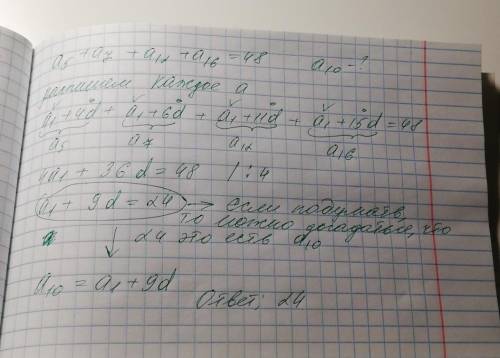 a₅ + a₇ + a₁₂ + a₁₆ = 48 a₁₀ - ?
распишем каждое a
a₁ + 4d + a₁ + 6d + a₁ + 11d + a₁ + 15d = 48
a₅ a₇ a₁₂ a₁₆
4a₁ + 36d = 48 | : 4
a₁ + 9d = 24 → если подумать,
то можно догадаться, что
↓ 24 это есть a₁₀
a₁₀ = a₁ + 9d
Ответ: 24